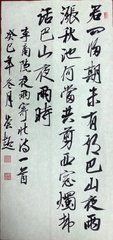 君问归期未有期巴山夜雨
漲秋池何當共剪西窗燭却
話巴山夜雨時
李商隱夜雨寄北詩一首
癸巳年冬月